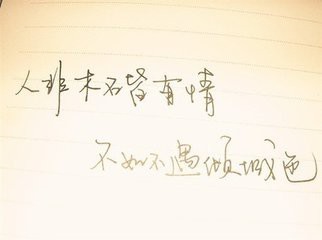 人非木石皆有情
不如不遇倾城色